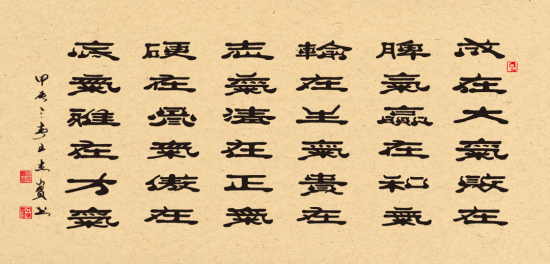 成在大氣敗在
脾氣贏在和氣
輸在生氣貴在
志氣清在正氣
硬在骨氣傲在
底氣雅在才氣
甲辰之春王志賓書